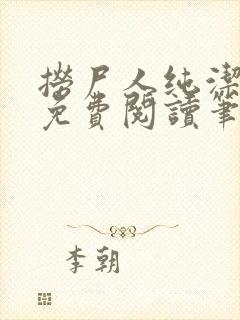 撈尸人純潔
免費閱讀筆
李朝